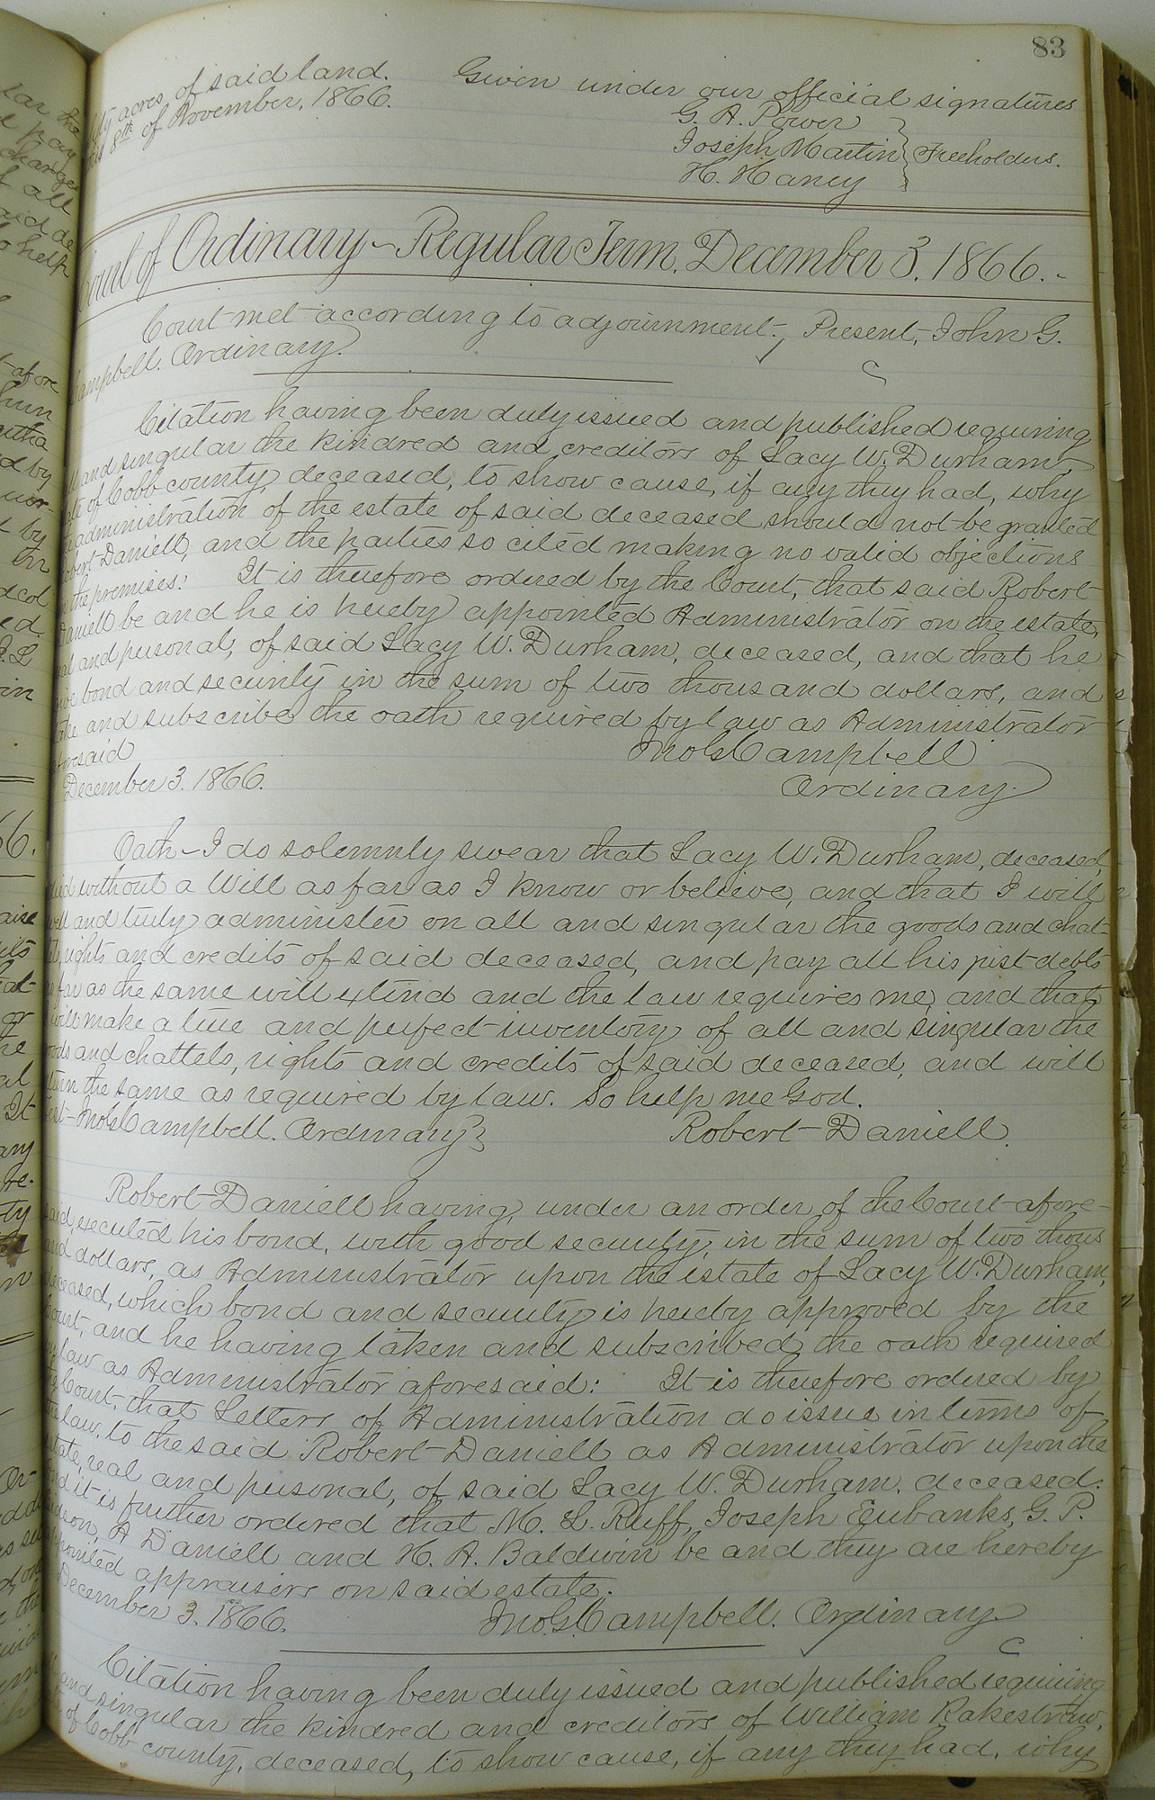 83
acres of said land. Given under our official signatures
8th of November, 1866.
G. A. Power
Joseph Martin } Freeholders.
H. Haney
Court of Ordinary ~ Regular Term, December 3. 1866.
Court met according to adjournment. Present, John G.
Campbell. Ordinary.
Citation having been duly issued and published requiring
all and singular the kindred and creditors of Lacy W. Durham,
late of Cobb county, deceased, to show cause, if any they had, why
administration of the estate of said deceased should not be granted
Robert Daniell, and the parties so cited making no valid objections
the premises: It is therefore ordered by the Court, that said Robert
Daniell be and he is hereby appointed Administrator on the estate,
real and personal, of said Lacy W. Durham, deceased, and that he
give bond and security in the sum of two thousand dollars, and
take and subscribe the oath required by law as Administrator
aforesaid
Jno G Campbell
December 3. 1866.
Ordinary.
Oath ~ I do solemnly swear that Lacy W. Durham, deceased,
died without a Will as far as I know or believe, and that I will
well and truly administer on all and singular the goods and chat-
tels, rights and credits of said deceased, and pay all his just debts
as far as the same will extend and the law requires me, and that
will make a true and perfect inventory of all and singular the
goods and chattels, rights and credits of said deceased, and will
return the same as required by law. So help me God.
Jno G Campbell. Ordinary } Robert Daniell.
Robert Daniell having, under an order of the Court afore-
said, executed his bond, with good security, in the sum of two thous
and dollars, as Administrator upon the estate of Lacy W. Durham,
deceased, which bond and security is hereby approved by the
Court, and he having taken and subscribed the oath required
by law as Administrator aforesaid: It is therefore ordered by
Court, that Letters of Administration do issue in terms of
the law, to the said Robert Daniell as Administrator upon the
estate, real and personal, of said Lacy W. Durham. deceased:
And it is further ordered that M. L. Ruff, Joseph Eubanks, G. P.
A Daniell and H. A. Baldwin be and they are hereby
appointed appraisers on said estate.
December 3. 1866. Jno. G. Campbell. Ordinary.
Citation having been duly issued and published requiring
and singular the kindred and creditors of William Rakestraw,
of Cobb county, deceased, to show cause, if any they had, why